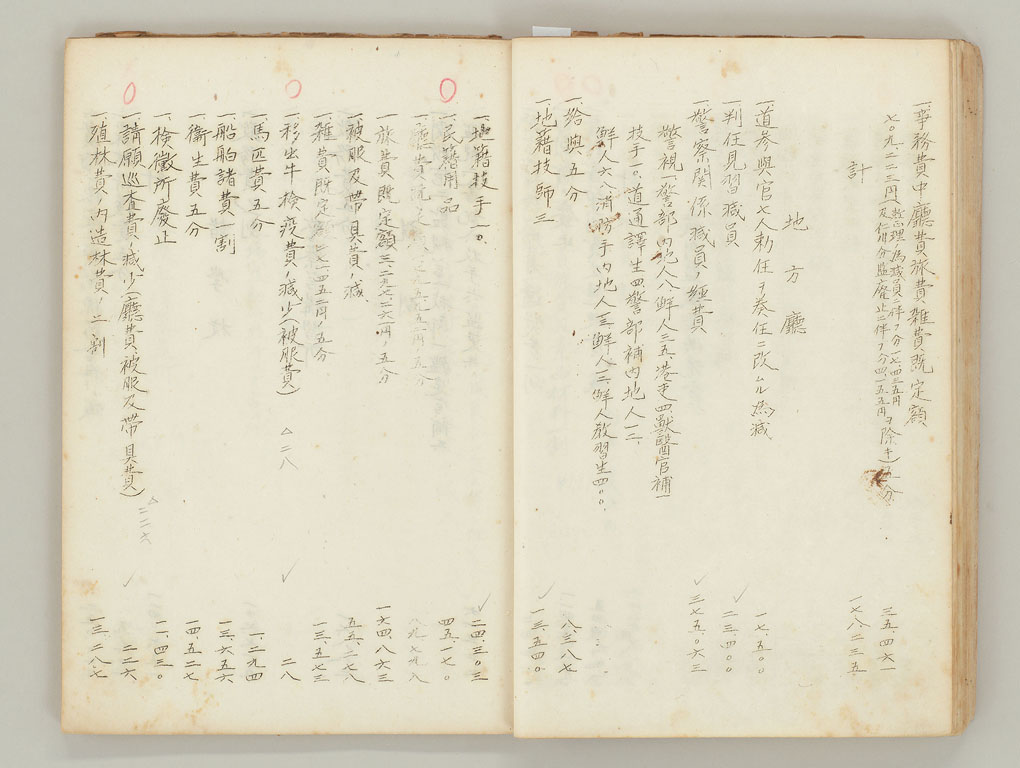 一、事務費中廳費旅費雑費既定額
七〇九、二二三円(整理ノ為減員ニ伴フ分一七、四三五円
及仁川分監廃止ニ伴フ分四、一五五円ヲ除キ)五分 三五、四六一
計 一七八二三五
地方廳
一、道参與官七人勅任ヲ奏任ニ改ムル為減 一七、五〇〇
一、判任見習職員 二三、四〇〇
一、警察関係職員ノ經費 三七五、〇六三
警視一、警部内地人八、鮮人三五、港吏四、獸醫官補一
技手一〇、道通譯生四、警部補内地人一二、
鮮人六八、消防手内地人三、鮮人三、鮮人教習生四〇〇、
一、給與五分 八、三八七
一、地籍技師三 一三、五四〇
一、地籍技手一〇、 二四、三〇三
一、民籍用品 四五、一七〇
一、廳費既定額 五分 八九、七九八
一、旅費既定額三、二九七、二六〇円ノ五分 一六四、八六三
一、被服及帶具費ノ減 五五、二七八
一、雑費既定額二七一四五二円ノ五分 一三、五七三
一、移出牛検疫費ノ減少(被服費) △二八 二八
一、馬匹費五分 一、二九四
一、船舶諸費一割 一三、六五六
一、衞生費五分 一四、五二七
一、検黴所廢止 二、四三〇
一、請願巡査費ノ減少(廳費、被服及帶具費) △二二六 二二六
一、殖林費ノ内造林費ノ二割 一三、二八七